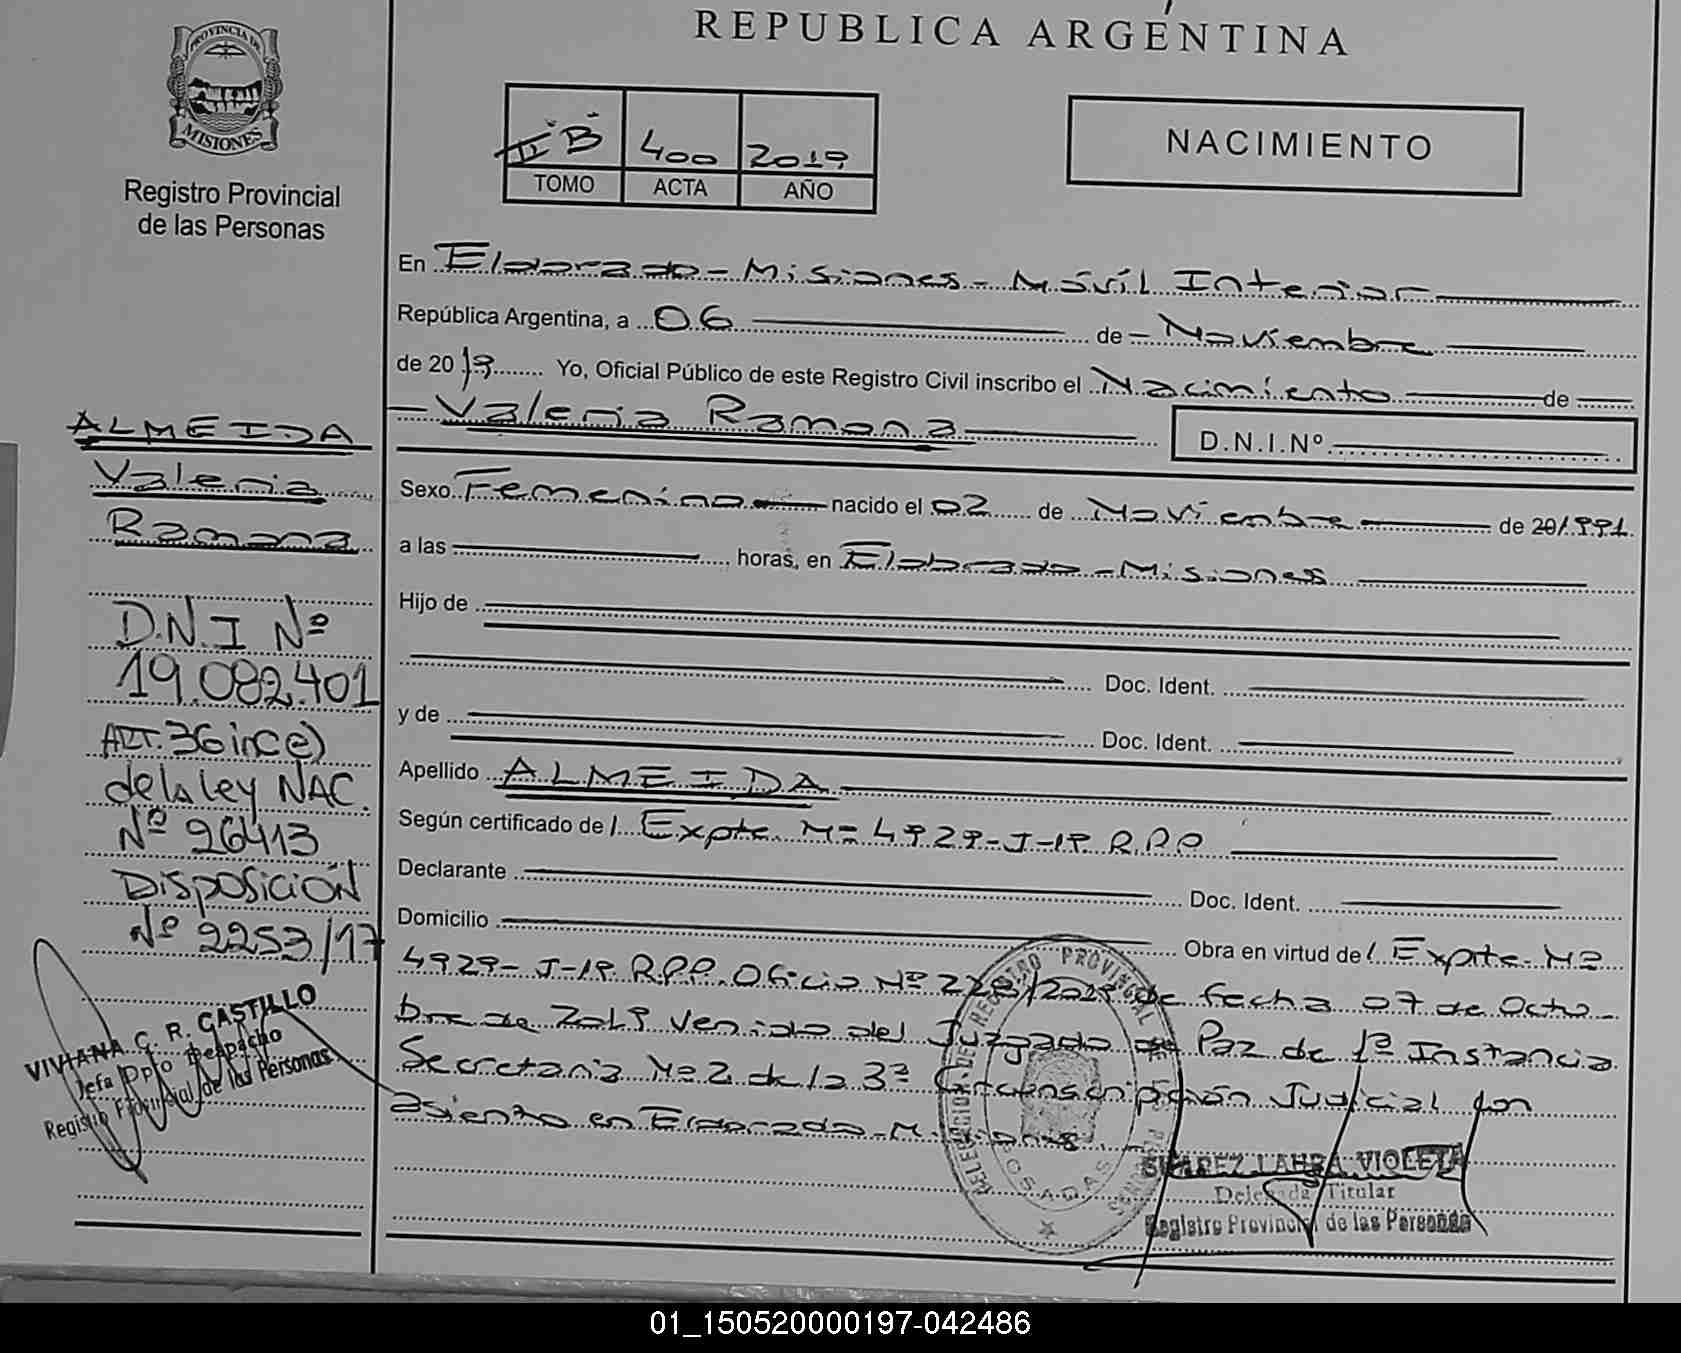 REPUBLICA ARGENTINA
PROVINCIA DE
MISIONES
Registro Provincial
de las Personas
II "B" 400 2019
TOMO ACTA AÑO
NACIMIENTO
En Eldorado - Misiones - Móvil Interior
República Argentina, a 06 de Noviembre
de 2019 Yo, Oficial Público de este Registro Civil inscribo el Nacimiento de
Valeria Ramona
D.N.I.Nº
Sexo Femenino nacido el 02 de Noviembre de 20/1991
a las horas, en Eldorado - Misiones
Hijo de
Doc. Ident.
y de
Doc. Ident.
Apellido ALMEIDA
Según certificado de / Expte Nº 4929-J-19 R.P.P
Declarante Doc. Ident.
Domicilio Obra en virtud de / Expte Nº
4929-J-19 R.P.P. Oficio Nº 228/2019 de fecha 07 de Octu-
bre de 2019 venido del Juzgado de Paz de 1ª Instancia
Secretaria Nº 2 de la 3ª Circunscripción Judicial con
asiento en Eldorado - Misiones
ALMEIDA
Valeria
Ramona
D.N.I Nº
19.082.401
ART. 36 inc e)
de la Ley NAC.
Nº 26413
DISPOSICIÓN
Nº 2253/17
VIVIANA C. R. CASTILLO
Jefa Dpto Despacho
Registro Provincial de las Personas
REGISTRO PROVINCIAL
POSADAS
SUAREZ LAURA VIOLETA
Delegada Titular
Registro Provincial de las Personas
01_150520000197-042486